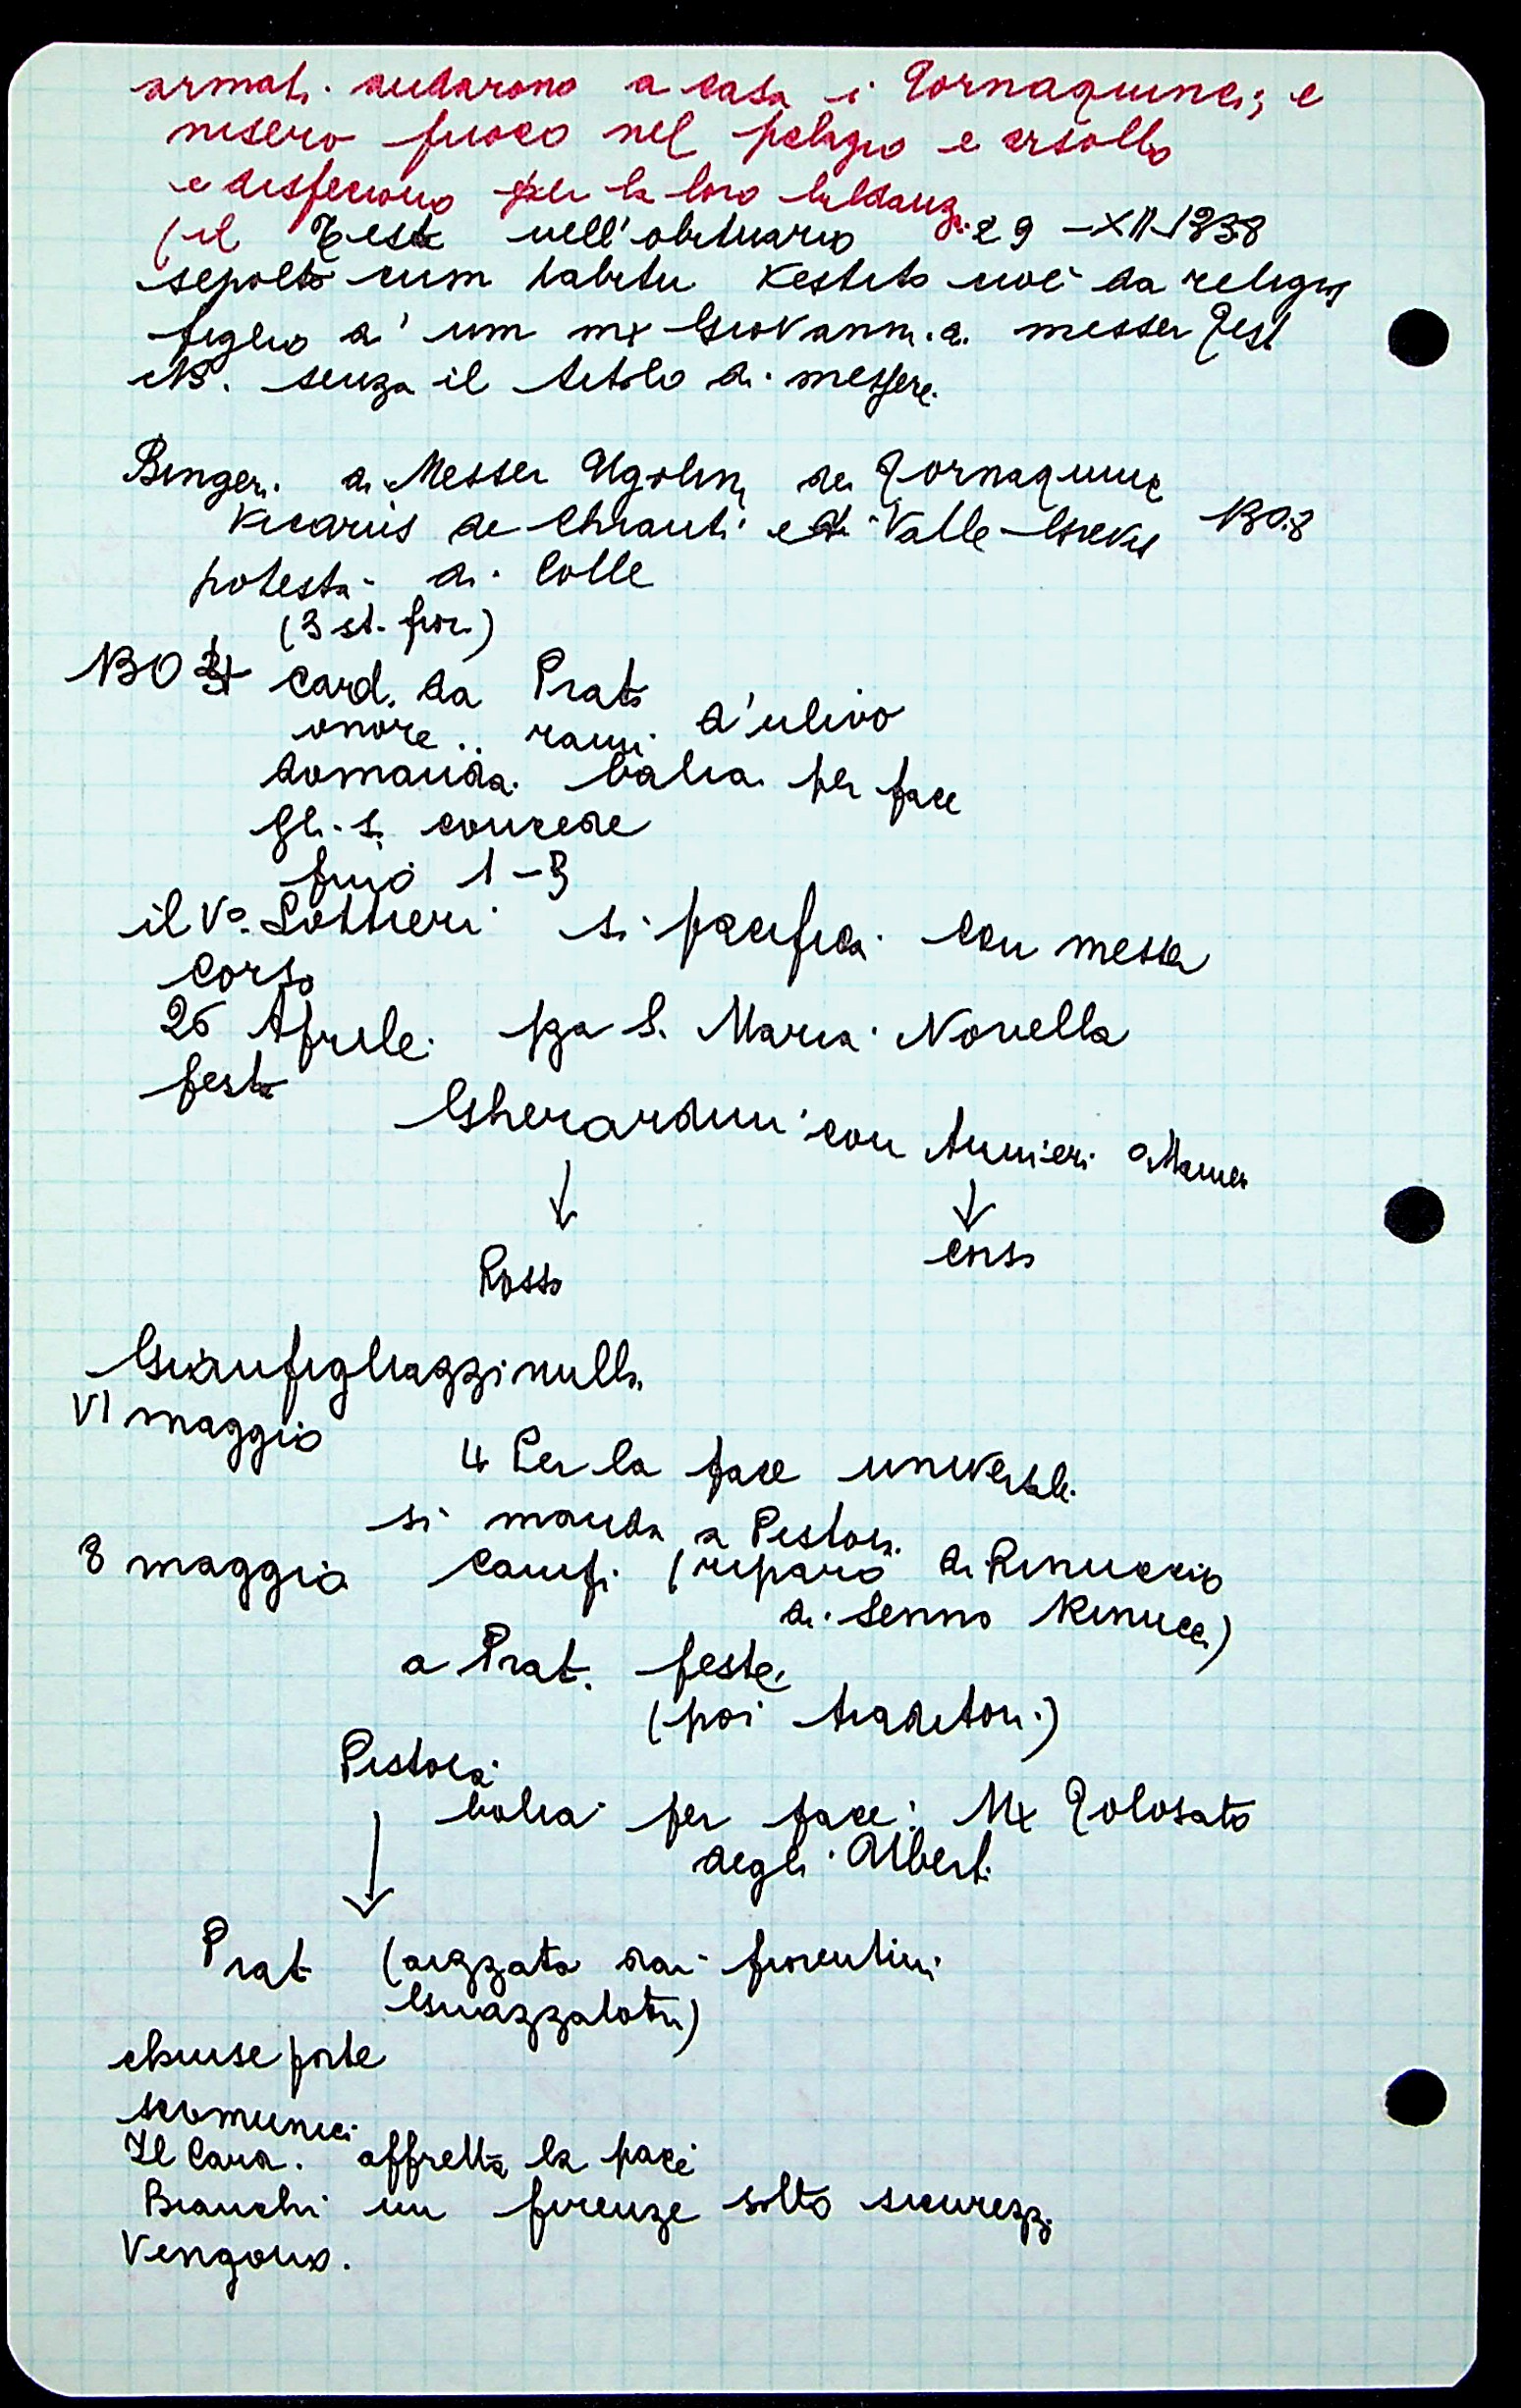 armati andarono a casa i Tornaquinci; e
misero fuoco nel palagio e arsollo
e disfeciono per la loro baldanza.
(il Testa nell'obituario 29-XII-1338
sepolto cum habitu vestito cioè da religios
figlio d'un mx Giovanni di messer Test
NB. senza il titolo di messere.
Bingeri di Messer Ugolini dei Tornaquinci
Vicarius de Chianti e di Valle Greve 1303
potestà di Colle
(3 st. fior.)
1304 card. da Prato
onore.. rami d'ulivo
domanda balia per pace
gli si concede
fino 1-5
il Vo. Lottieri si pacifica con messer
Corso
26 Aprile pza S. Maria Novella
festa
Gherardini con Amieri o Manieri
Rosso
Corso
Gianfigliazzi nulla
VI maggio
4 Per la pace universale
si manda a Pistoia
8 maggio Campi (riparo di Rinuccio
di Senno Rinucci)
a Prato feste
(poi traditori)
Pistoia
balia per pace: Mx Tolosato
degli Alberti
Prato (aizzata dai fiorentini
Guazzalotri)
chiuse porte
scomunica
Il Card. affretta la pace
Bianchi in firenze sotto sicurezza
Vengono.